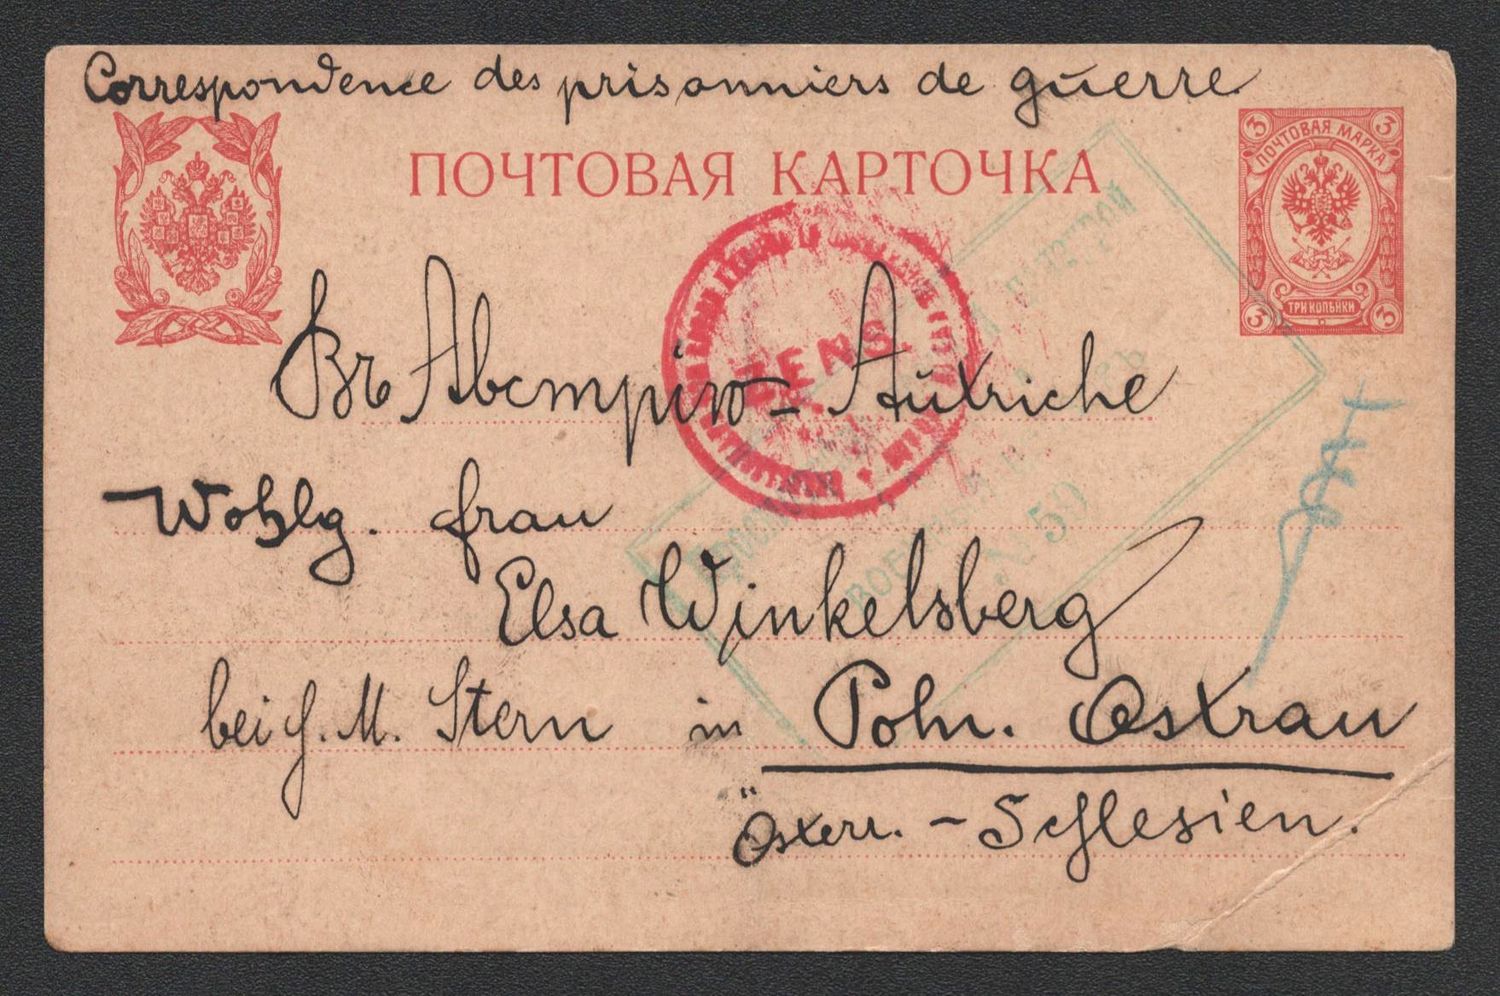 Correspondence des prisonniers de guerre
ПОЧТОВАЯ КАРТОЧКА
3 3
ПОЧТОВАЯ МАРКА
ТРИ КОПѢЙКИ
3 3
ZENS.
Въ Австрію - Aŭtriche
Wohlg. Frau
№ 50
Elsa Winkelsberg
bei J. M. Stern in Poln. Ostrau
Österr. - Schlesien.